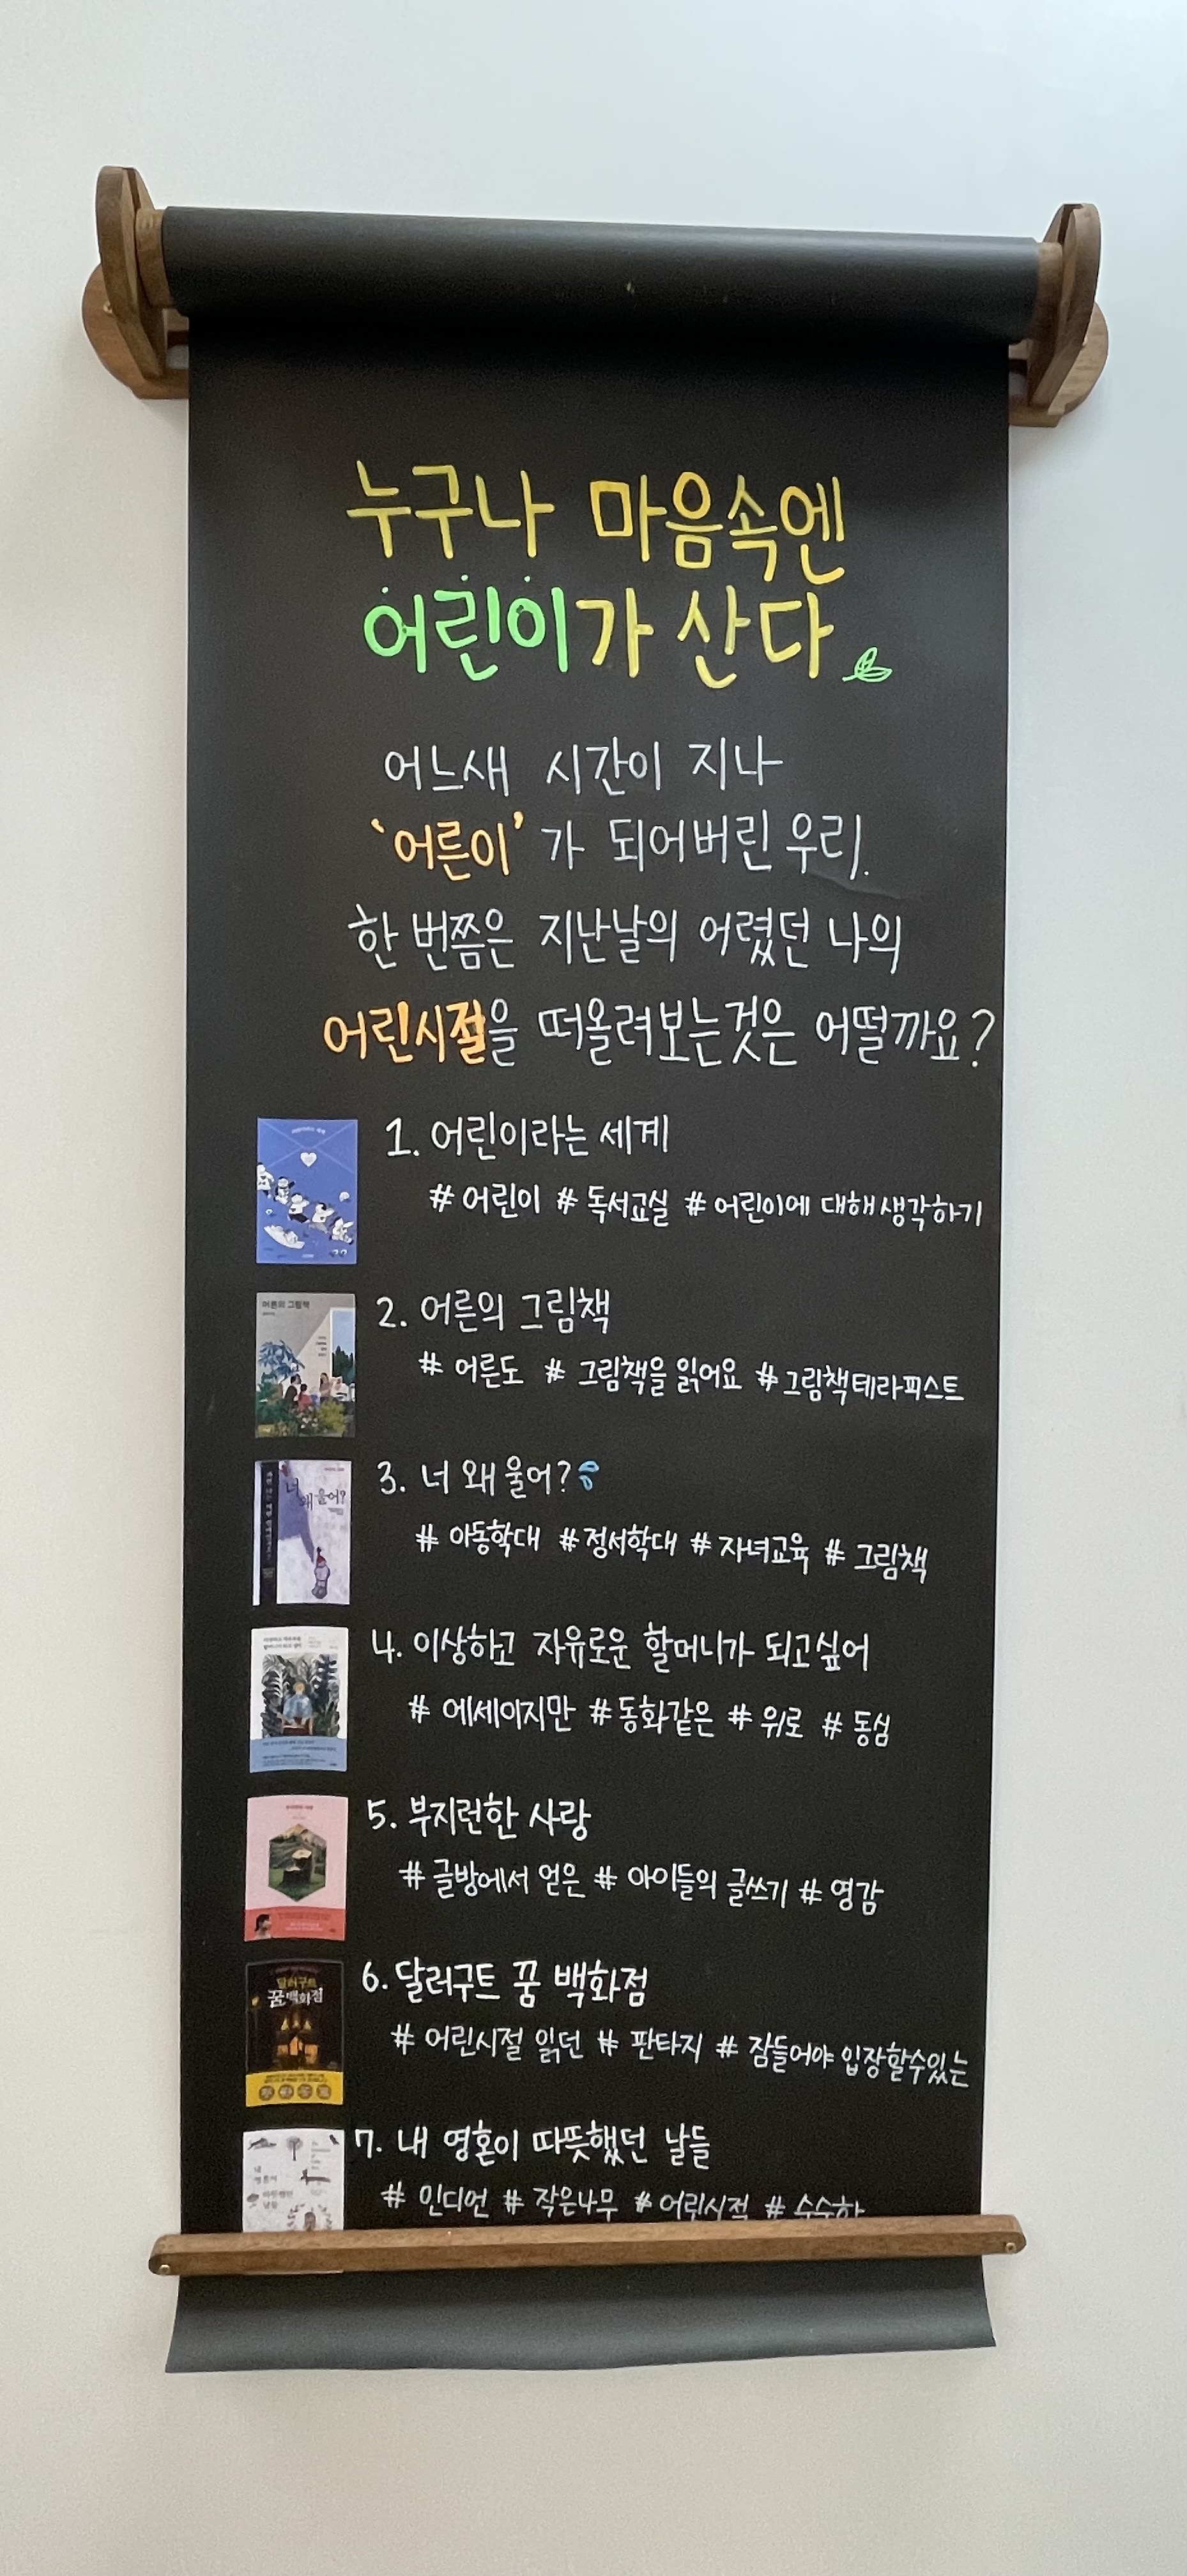 누구나 마음속엔
어린이가 산다
어느새 시간이 지나
'어른이'가 되어버린 우리.
한 번쯤은 지난날의 어렸던 나의
어린시절을 떠올려보는것은 어떨까요?
1. 어린이라는 세계
# 어린이 # 독서교실 # 어린이에 대해 생각하기
어른의 그림책
2. 어른의 그림책
# 어른도 # 그림책을 읽어요 # 그림책테라피스트
너 왜 울어?
3. 너 왜 울어?
# 아동학대 # 정서학대 # 자녀교육 # 그림책
4. 이상하고 자유로운 할머니가 되고싶어
# 에세이지만 # 동화같은 # 위로 # 동심
5. 부지런한 사랑
# 글방에서 얻은 # 아이들의 글쓰기 # 영감
달러구트
꿈 백화점
6. 달러구트 꿈 백화점
# 어린시절 읽던 # 판타지 # 잠들어야 입장할수있는
7. 내 영혼이 따뜻했던 날들
# 인디언 # 작은나무 # 어린시절 #